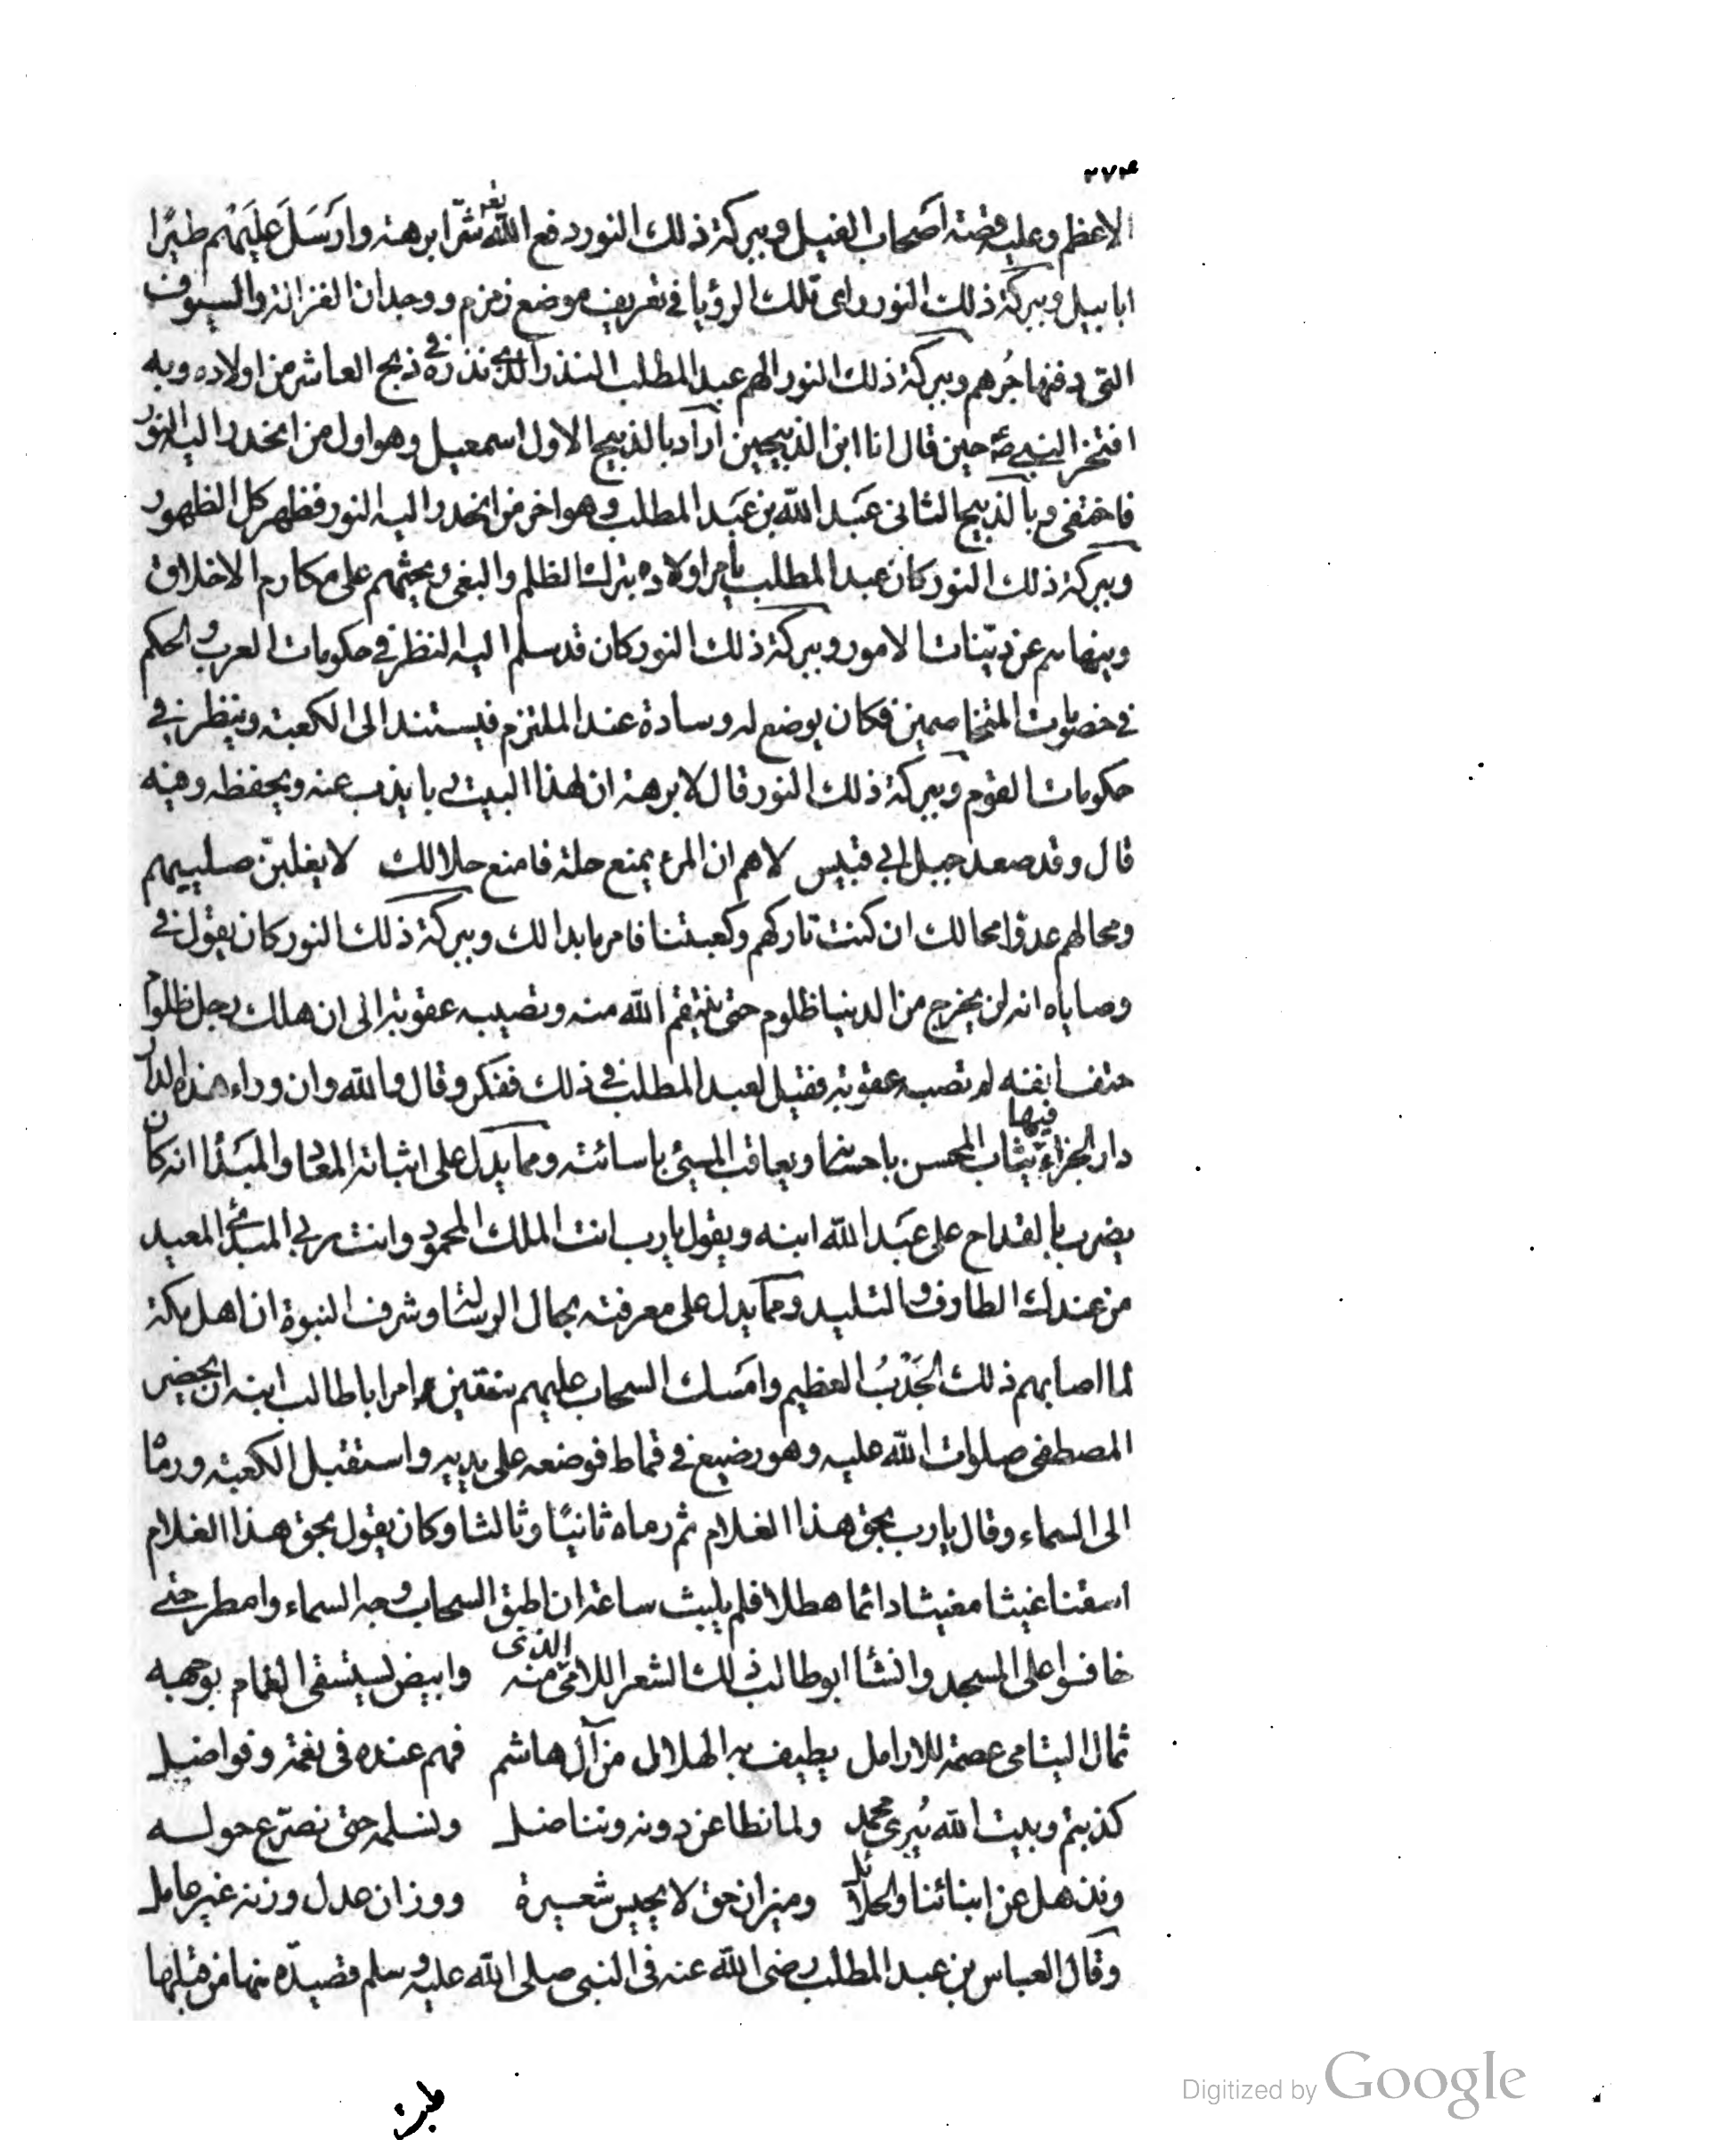 ٢٧٤
الاعظم وعليه قصة اصحاب الفيل وببركة ذلك النور دفع الله تعـ شرّ ابرهة وارسَلَ علَيهم طيرًا
ابابيل وببركة ذلك النور راى تلك الرؤيا في تعريف موضع زمزم ووجدان الغزالة والسيوف
التى دفنها جُرهم وببركة ذلك النور الهم عبد المطلب النذر الذى نذره في ذبح العاشر من اولاده وبه
افتخر النبي صـ حين قال انا ابن الذبيحين اراد بالذبيح الاول اسمعيل وهو اول من انحدر اليه النور
فاختفى وبالذبيح الثانى عَبد الله بن عَبد المطلب وهو اخر من انحدر اليه النور فظهر كل الظهور
وببركة ذلك النور كان عبد المطلب يأمر اولاده بترك الظلم والبغى ويحثهم على مكارم الاخلاق
وينهاهم عن دنيّات الامور وببركة ذلك النور كان قد سلم اليه النظر في حكومات العرب والحكم
في خصومات المتخاصمين فكان يوضع له وسادة عند الملتزم فيستند الى الكعبة وينظر في
حكومات القوم وببركة ذلك النور قال لابرهة ان لهذا البيت ربا يذب عنه ويحفظه وفيه
قال وقد صعد جبل ابي قبيس لاهم ان المرء يمنع حله فامنع حلالك لا يغلبنّ صليبهم
ومحالهم عدوًا محالك ان كنت تاركهم وكعبتنا فامر ما بدا لك وببركة ذلك النور كان يقول في
وصاياه انه لن يخرج من الدنيا ظلوم حتى ينتقم الله منه وتصيبه عقوبة الى ان هلك رجل ظلوم
حتف انفه لم تصبه عقوبة فقيل لعبد المطلب في ذلك ففكر وقال والله وان وراء هذه الدار
دار الجزاء فيها يثاب المحسن باحسانه ويعاقب المسيئ باسائته ومما يدل على اثباته المعاد والمبَدأ انه كان
يضرب بالقداح على عَبد الله ابنه ويقول يا رب انت الملك المحمود وانت ربي المبدئ المعيد
من عندك الطارف والتليد ومما يدل على معرفته بحال الرسالة وشرف النبوة ان اهل مكة
لما اصابهم ذلك الجَدْبُ العظيم وامسك السحاب عليهم سنتين امر ابا طالب ابنه ان يحضر
المصطفى صلوات الله عليه وهو رضيع في قماط فوضعه على يديه واستقبل الكعبة ورماه
الى السماء وقال يا رب بحق هذا الغلام ثم رماه ثانيًا وثالثا وكان يقول بحق هذا الغلام
اسقنا غيثا مغيثا دائما هطلا فلم يلبث ساعة ان طبق السحاب وجه السماء وامطر حتى
خافوا على المسجد وانشأ ابو طالب ذلك الشعر اللامى الذى منه وابيض يستسقى الغمام بوجهه
ثمال اليتامى عصمة للارامل يطيف به الهلال من آل هاشم فهم عنده في نعمة وفواضل
كذبتم وبيت الله يُبرى محمد ولما نطاعن دونه ونناضل ونسلمه حتى نصرّع حوله
ونذهل عن ابنائنا والحلائل وميزان حق لا يخيس شعيرة ووزان عدل وزنه غير عامل
وقال العباس بن عبد المطلب رضى الله عنه في النبى صلى الله عليه وسلم قصيدة منها من قبلها
طبت
Digitized by Google